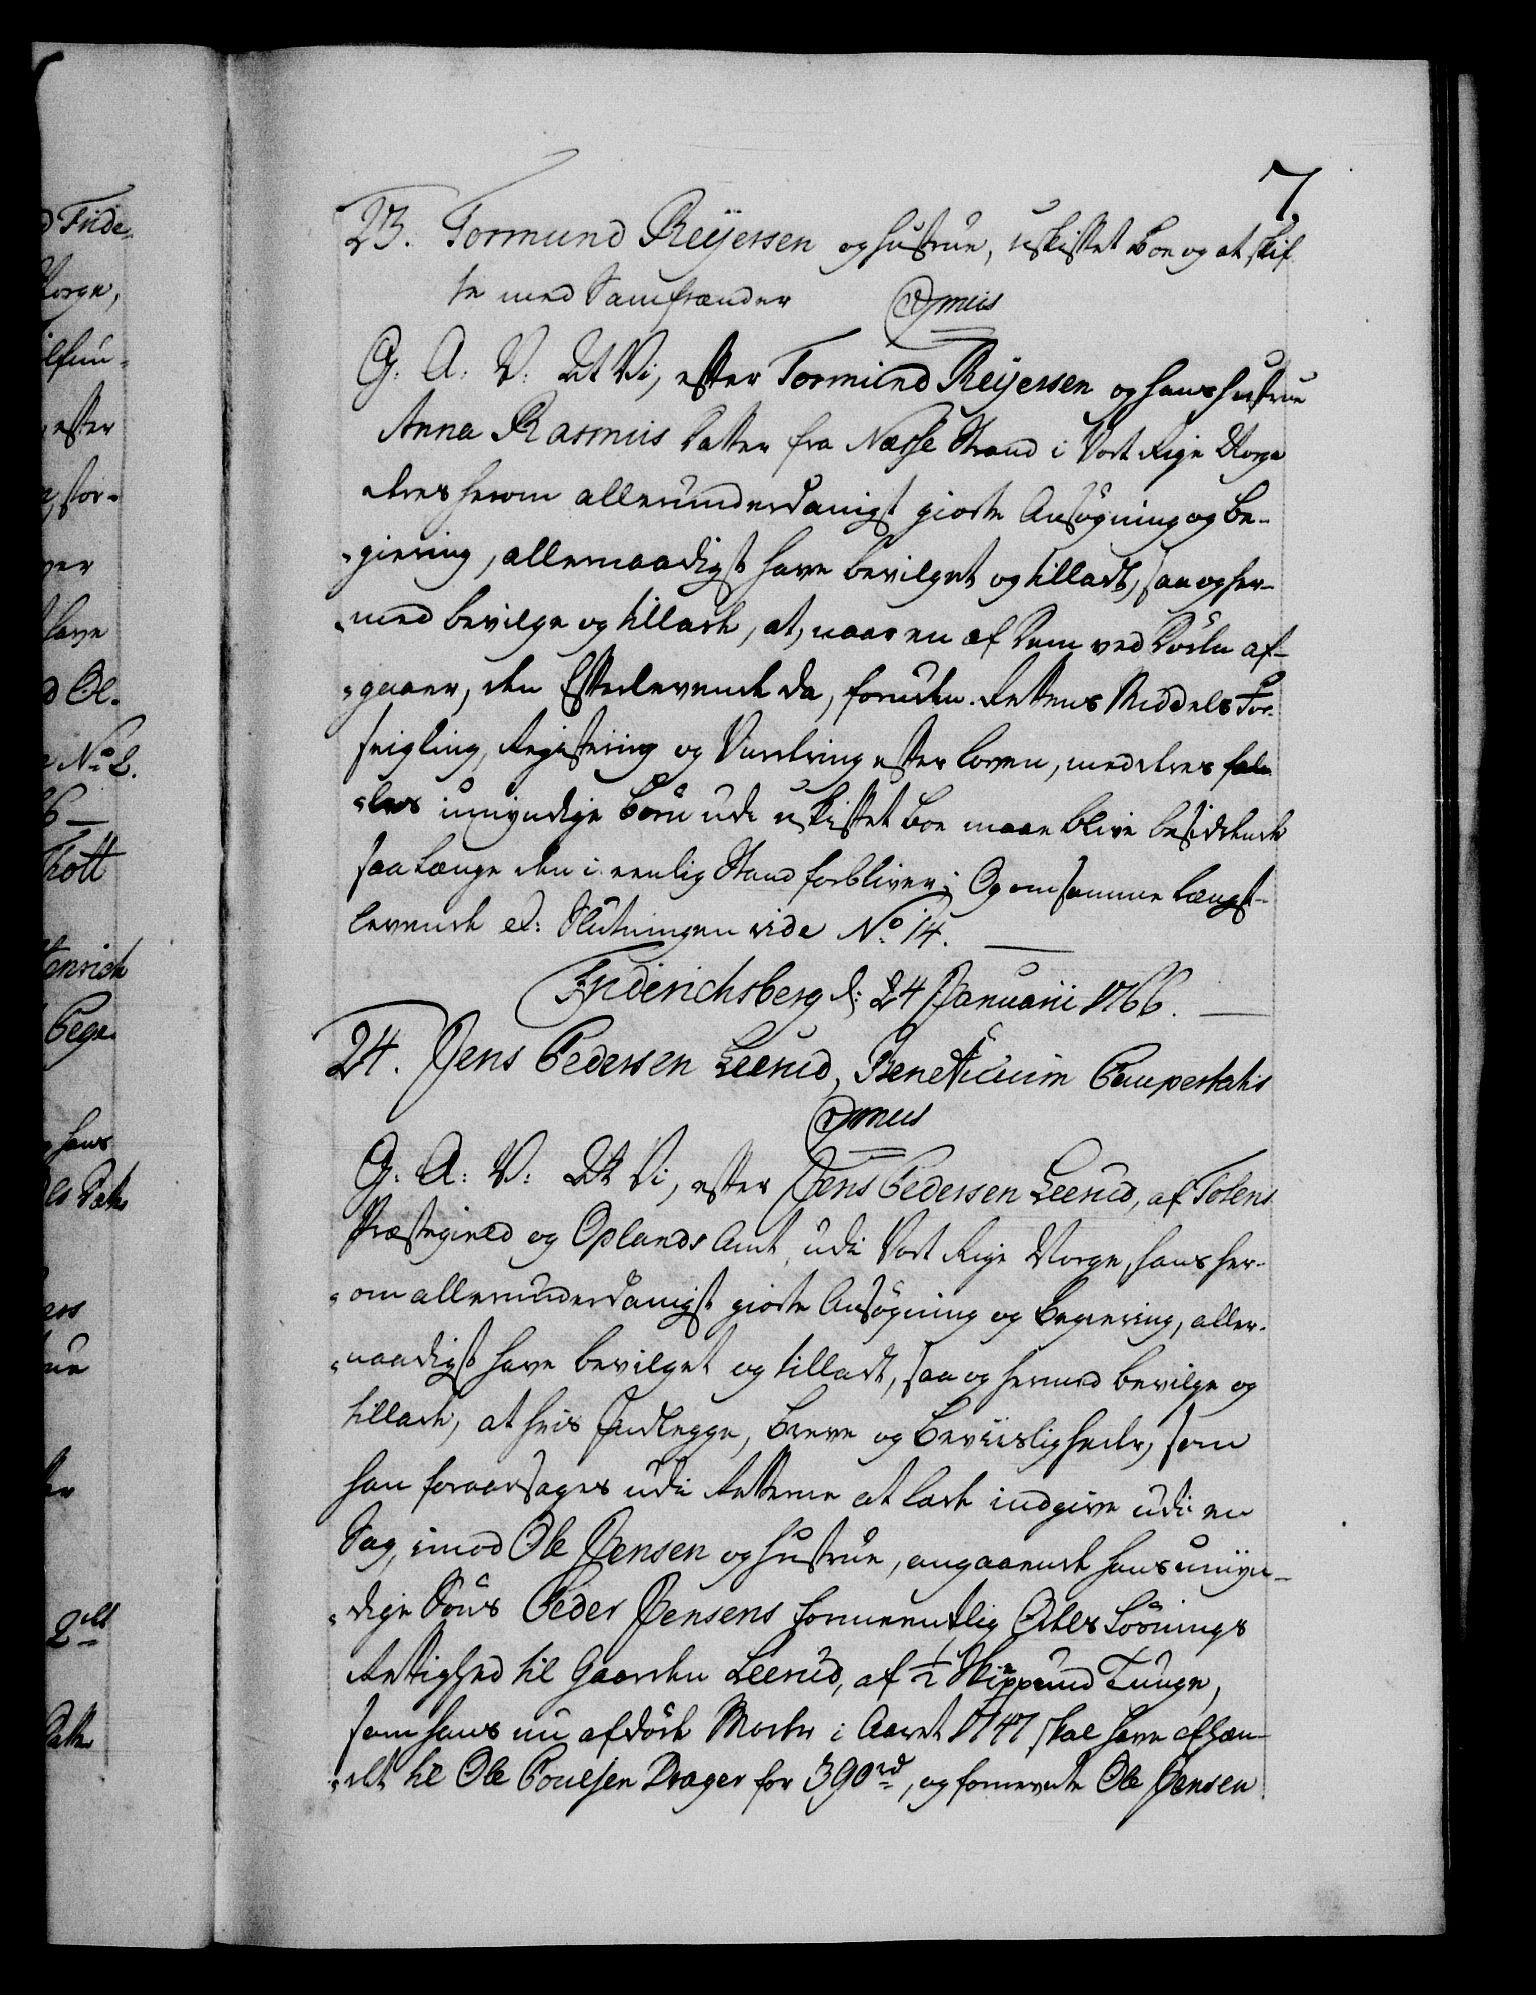 7.
23. Tormund Reijersen og Hustrue, uskiftet Boe og at skif-
te med Samfrænder Qvmus
G. A. V: At Vi, efter Tormund Reijersen og hans Hustrue
Anna Rasmus Datter fra Nærße Strand i Vort Rige Norge
deres herom allerunderdanigst giorte Ansøgning og Be-
giering, allernaadigst have bevilget og tilladt, saa og her-
med bevilge og tillade, at, naar en af Dem ved Døden af-
gaaer, den Efterlevende da, foruden Rettens Middels For-
seigling, Registering og Vurdering efter Loven, med deres fæl-
les umyndige Børn udi uskiftet Boe maae blive besiddende
saa længe den i eenlig Stand forbliver; Og om samme længst-
levende etc: Slutningen vide No 14.
Friderichsberg d: 24 Januarii 1766.
24. Jens Pedersen Leerud, Beneficium Paupertatis
Qvmus
G. A. V: At Vi, efter Jens Pedersen Leerud, af Totens
Præstegield og Oplands Amt, udi Vort Rige Norge, hans her-
om allerunderdanigst giorte Ansøgning og Begiering, aller-
naadigst have bevilget og tilladt, saa og hermed bevilge og
tillade, at hvis Indlegge, Breve og Beviisligheder, som
han foraarsages udi Retterne at lade indgive udi en
Sag, imod Ole Jensen og Hustrue, angaaende hans umyn-
dige Søns Peder Jensens formeentlig Odels Løsnings
Rettighed til Gaarden Leerud, af 1/2 Skippund Tunge,
som hans nu afdøde Moder i Aaret 1747 skal have afhæn-
det til Ole Poulsen Drager for 390 rd, og fornevnte Ole Jensen